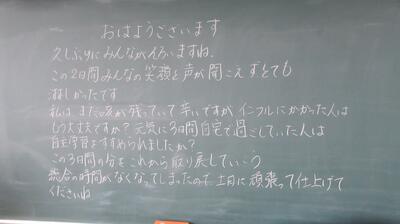 おはようございます
久しぶりにみんながそろいますね。
この2日間みんなの笑顔と声が聞こえずとても
淋しかったです
私は、まだ咳が残っていて辛いですが、インフルにかかった人は
もう大丈夫ですか？元気に3日間自宅で過ごしていた人は
自主学習をすすめられましたか？
この3日間の分をこれから取り戻していこう
総合の時間がなくなってしまったので 土日に 頑張って仕上げて
くださいね